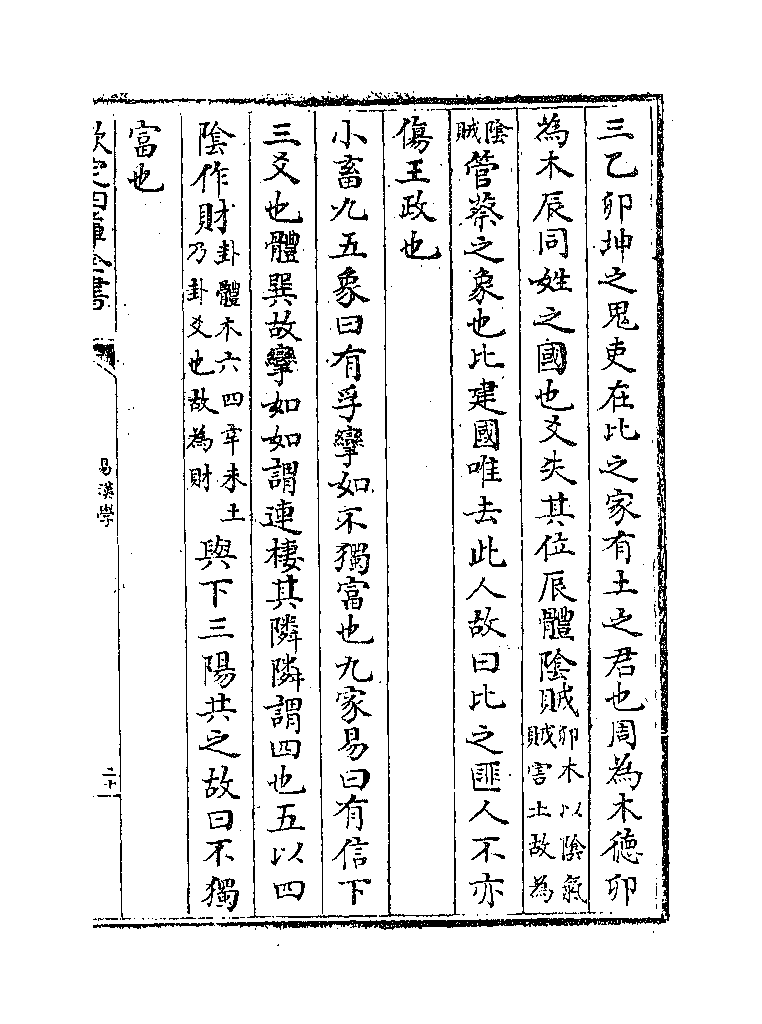 三乙卯坤之鬼吏在比之家有土之君也周為木徳卯
為木辰同姓之國也爻失其位辰體陰賊卯木以陰氣賊害土故為
陰賊管蔡之象也比建國唯去此人故曰比之匪人不亦
傷王政也
小畜九五象曰有孚攣如不獨富也九家易曰有信下
三爻也體巽故攣如如謂連棲其隣隣謂四也五以四
陰作財卦體木六四辛未土乃卦爻也故為財與下三陽共之故曰不獨
富也
欽定四庫全書
易漢學
二十一